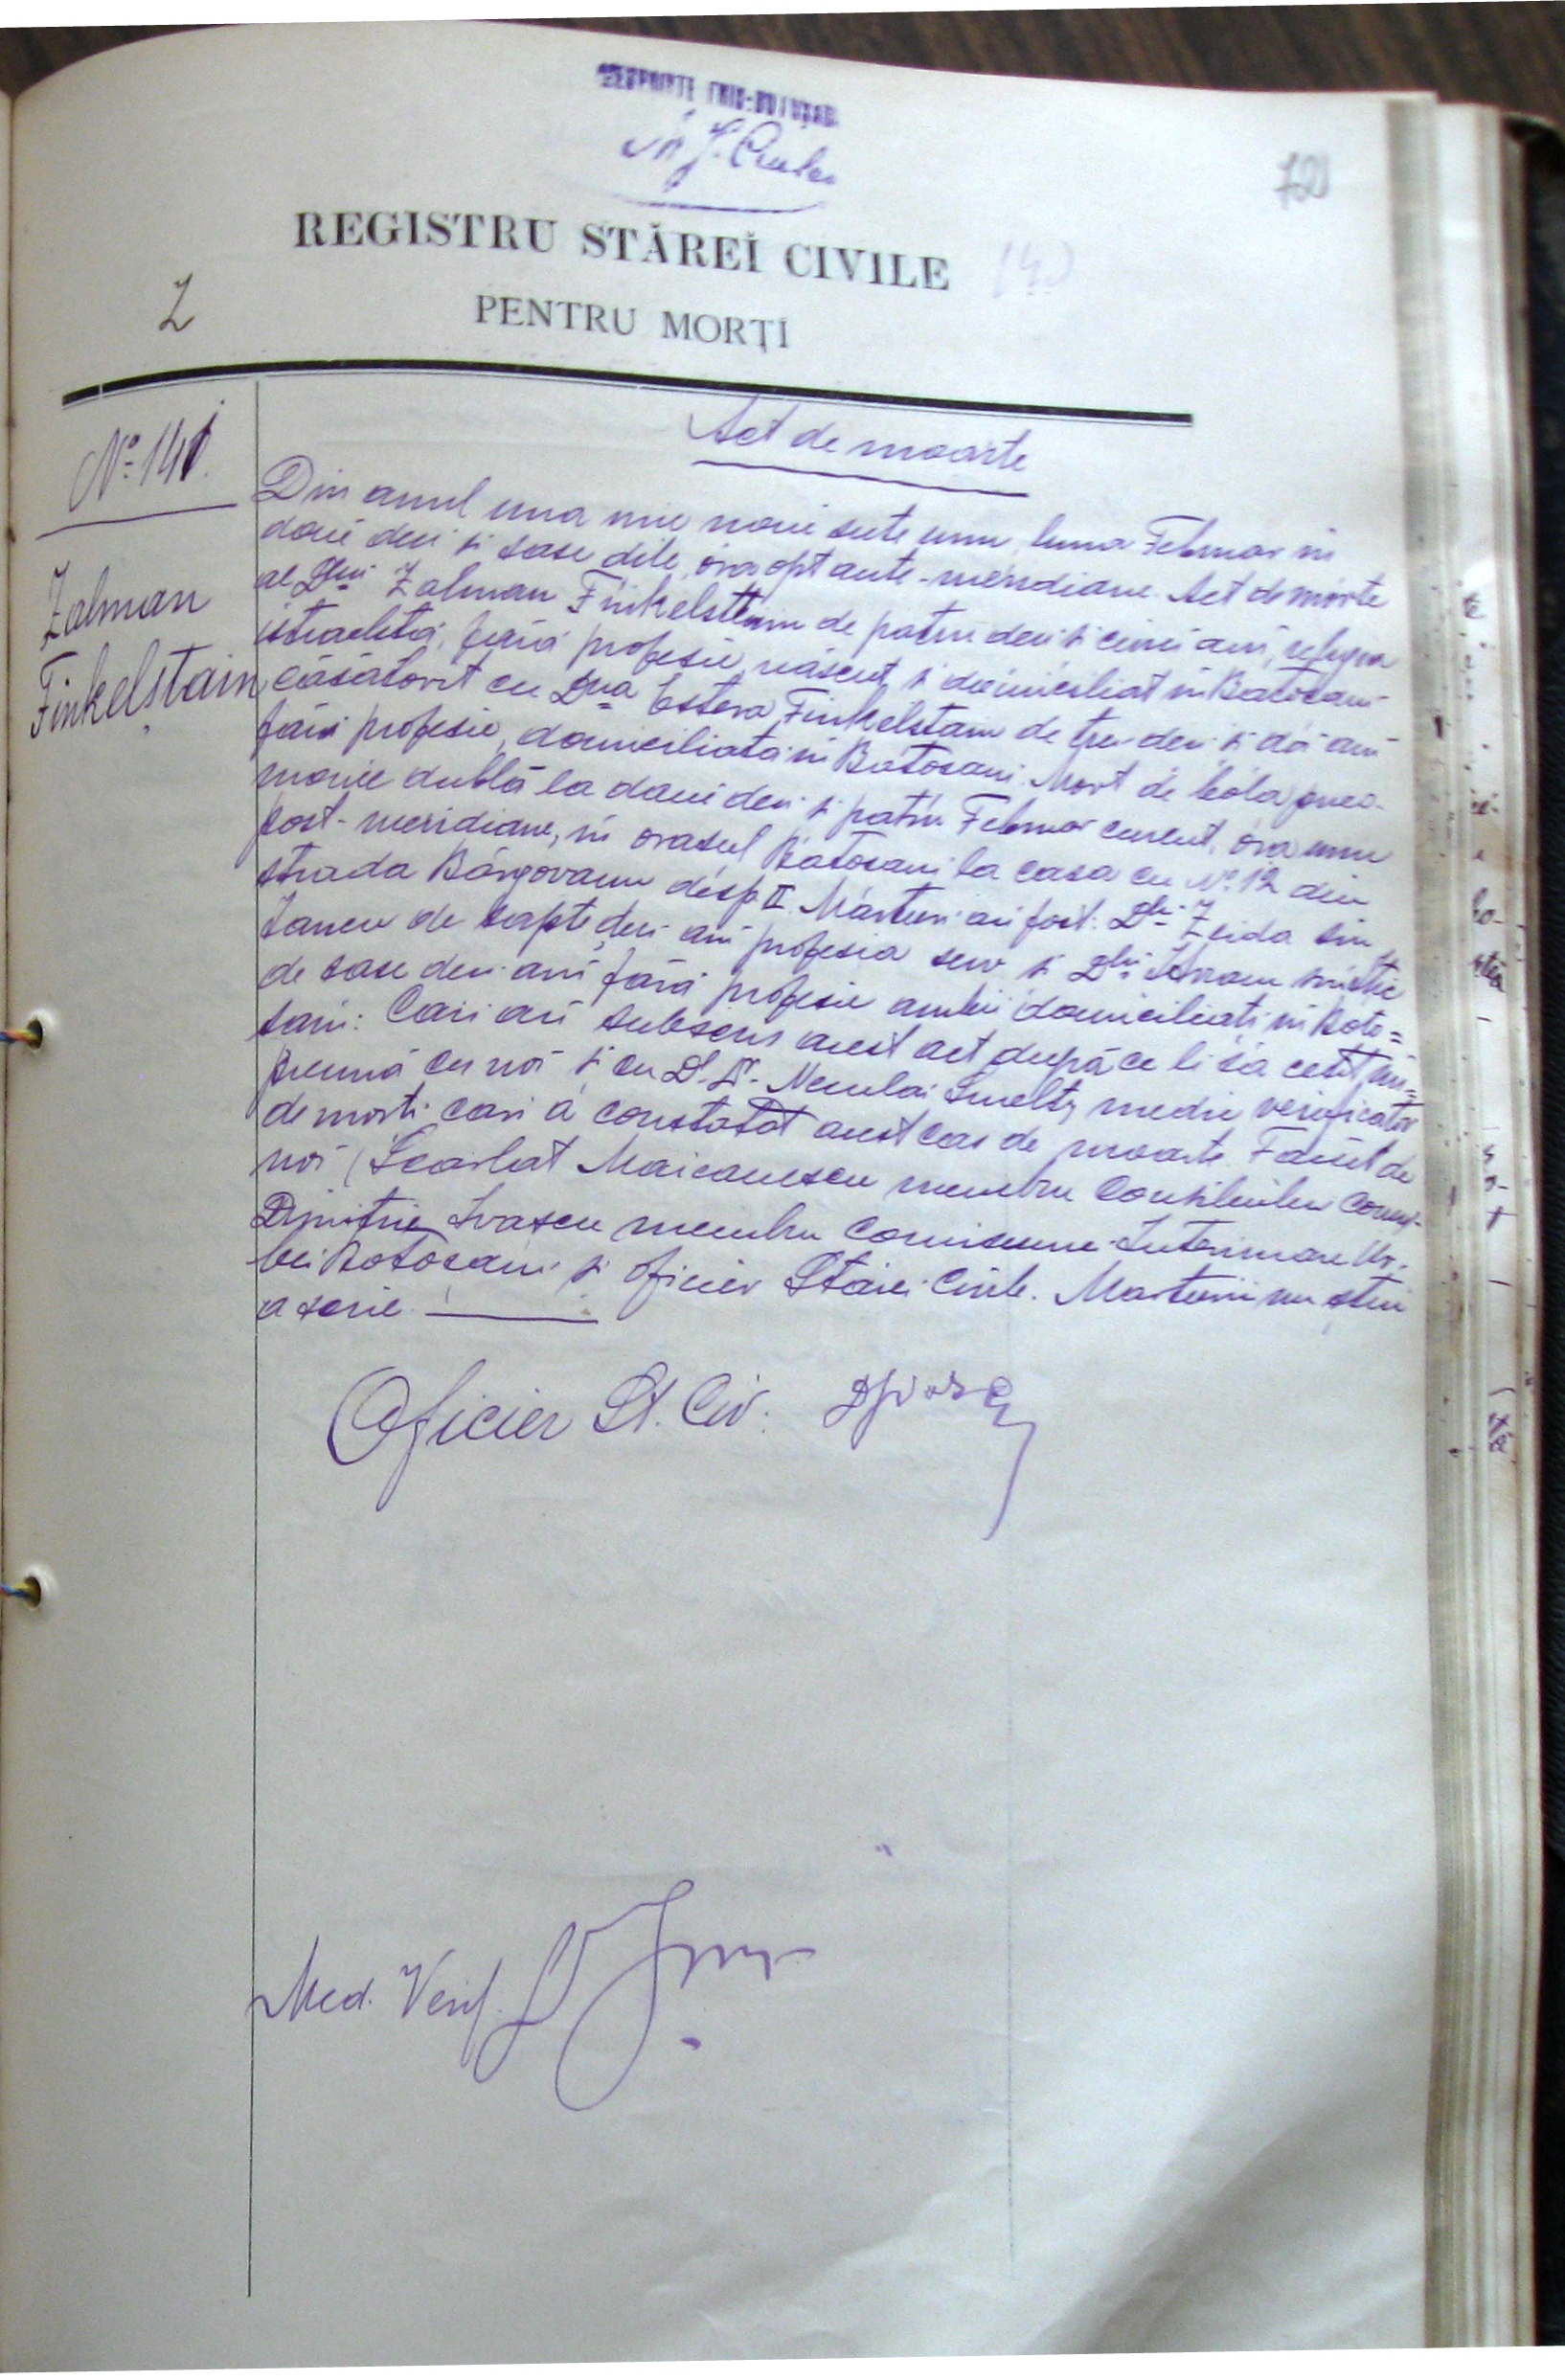 720
REGISTRU STĂREĬ CIVILE
PENTRU MORȚI
Z
Act de moarte
No 141.
Zalman
Finkelștain
Din anul una mie noue sute unu, luna Februar in
doue deci si sase dile, óra opt ante-meridiane. Act de mórte
al Dlui Zalman Finkelsttain de patru deci si cinci ani, religia
israelită, fară profesie, născut si domiciliat in Botosani
căsătorit cu Dna Estera Finkelstain de trei-deci si doi ani
fără profesie, domiciliată in Botosani. Mort de bóla pneo-
monie dublă la doue deci si patru Februar curent, óra unu
post-meridiane, in orasul Botosani la casa cu No 12 din
strada Bărgovanu desp. II. Marturi au fost: Dlui Zeida sin
Iancu de sapte deci ani profesia serv si Dlui
de sase deci ani fără profesie ambii domiciliați in Boto=
sani: Cari aŭ subscris acest act după ce li sa cetit im=
preună cu noi si cu Dl. Dr. Neculai Smeltz medic verificator
de morti cari a constatat acest cas de moarte. Facut de
noi (Scarlat Maicanescu membru Consiliului Comu-
Dimitrie Ivascu membru Comisiune Interimare Ur.
bei Botosani si oficier Stărei Civile. Marturii nu știu
a scrie.
Oficier St. Civ.
Med. Verif.